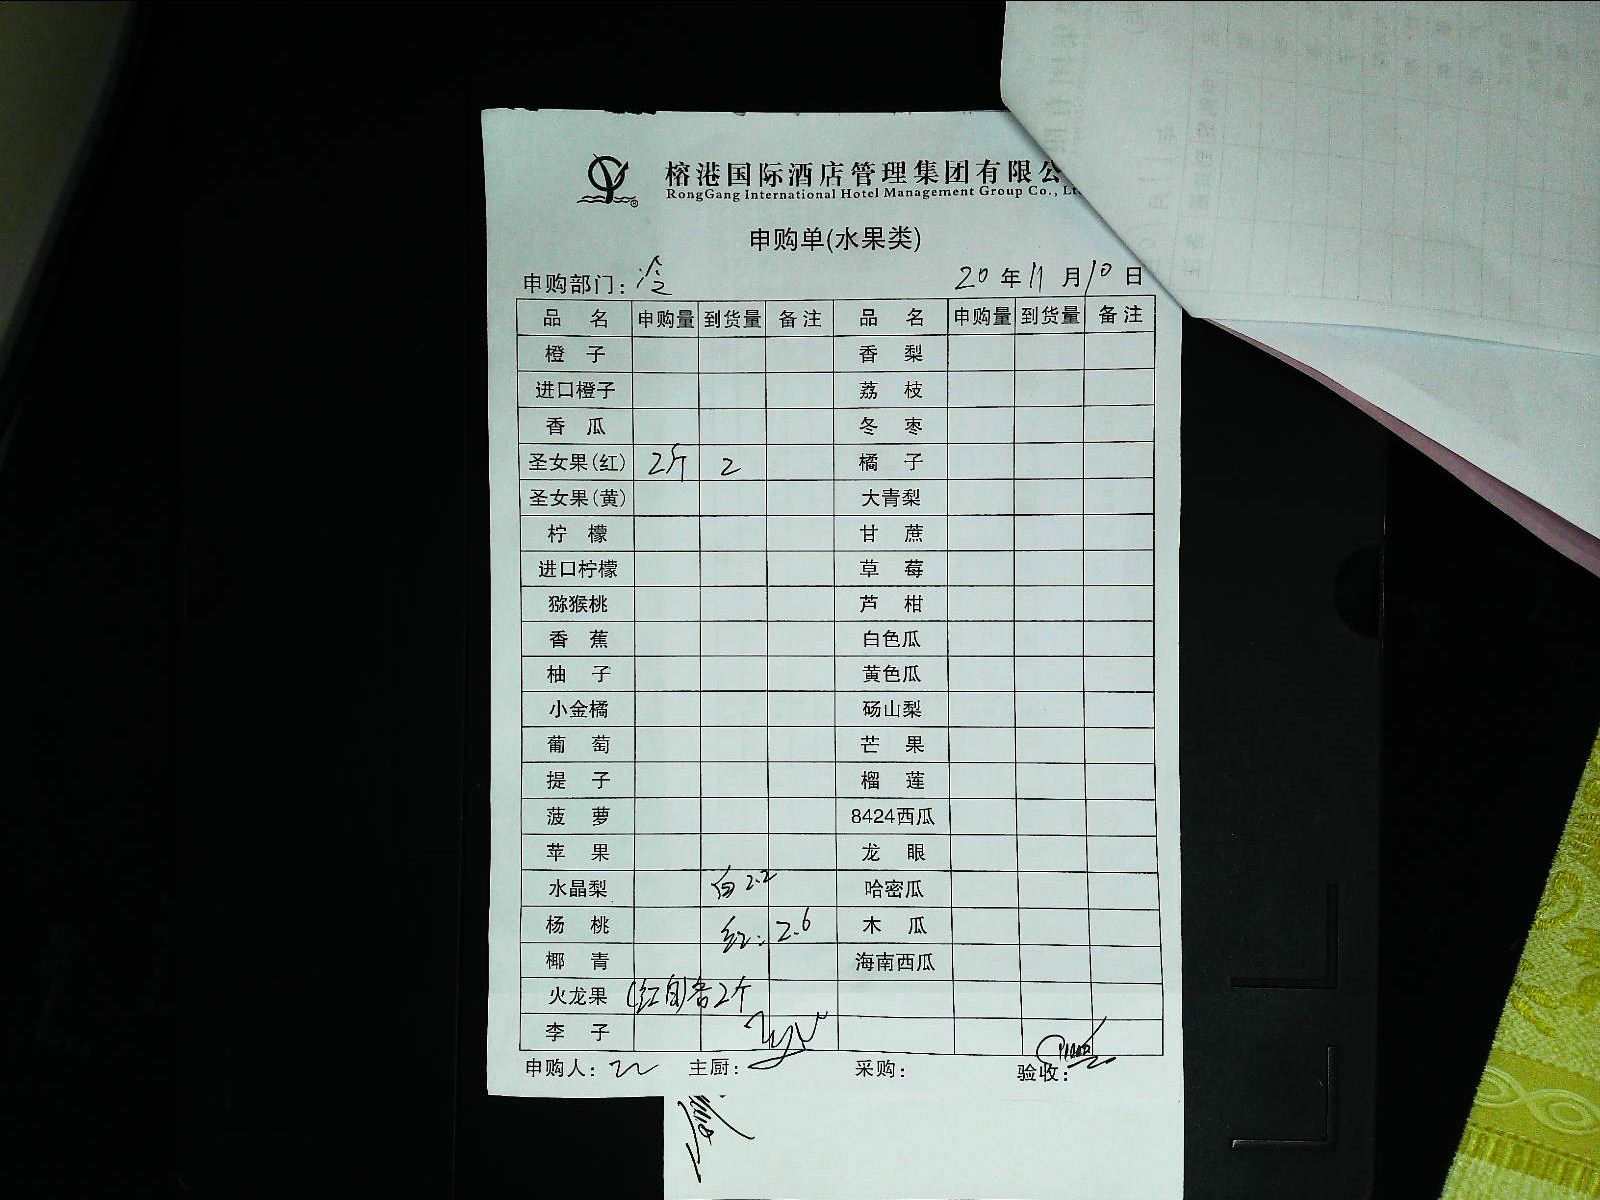 榕港国际酒店管理集团有限公
RongGang International Hotel Management Group Co., Lt
申购单(水果类)
申购部门：冷 20 年 11 月 10 日
品 名 申购量 到货量 备注 品 名 申购量 到货量 备注
橙 子 香 梨
进口橙子 荔 枝
香 瓜 冬 枣
圣女果(红) 2斤 2 橘 子
圣女果(黄) 大青梨
柠 檬 甘 蔗
进口柠檬 草 莓
猕猴桃 芦 柑
香 蕉 白色瓜
柚 子 黄色瓜
小金橘 砀山梨
葡 萄 芒 果
提 子 榴 莲
菠 萝 8424西瓜
苹 果 龙 眼
水晶梨 白2.2 哈密瓜
杨 桃 红：2.6 木 瓜
椰 青 海南西瓜
火龙果 (红白)各2个
李 子
申购人： 主厨： 采购： 验收：